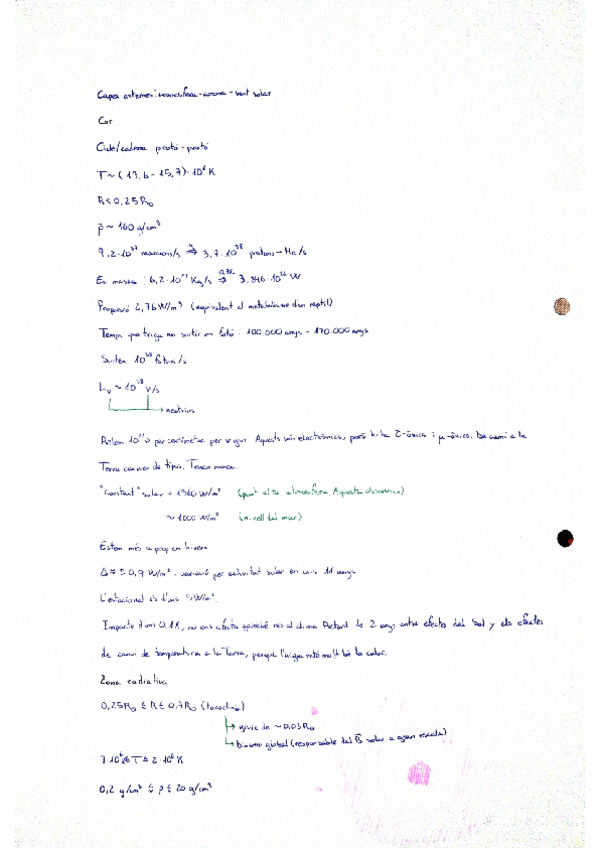 Capes externes: cromosfera - corona - vent solar
Cor
Cicle/cadena protó - protó
T ~ (13,6 - 15,7)·10⁶ K
R < 0,25 R☉
ρ̄ ~ 160 g/cm³
9,2·10³⁷ reaccions/s ⇒ 3,7·10³⁸ protons → He/s
En massa: 6,2·10¹¹ Kg/s ⇒ 3,846·10²⁶ W
0,7%
Proporció 2,76 W/m³ (equivalent al metabolisme d'un reptil)
Temps que triga en sortir un fotó: 100.000 anys - 170.000 anys
Surten fotons/s
Lν ~ 10³⁸ ν/s
neutrins
Reben 10¹¹ ν per centímetre per segon. Aquests són electrònics, però hi ha τ-ònics i μ-ònics. De camí a la
Terra canvien de tipus. Tenen massa.
"Constant" solar = W/m² (part alta atmosfera. Aquesta observació)
~ 1000 W/m² (nivell del mar)
Estem més a prop en hivern
Δ ≈ ± 0,9 W/m² · variació per activitat solar en uns 11 anys
L'estacional és d'uns W/m².
Impacte d'un 0,1%, no ens afecta gairebé res al clima. Retard de 2 anys entre efectes del Sol y els efectes
de canvi de temperatura a la Terra, perquè l'aigua reté molt bé la calor.
Zona radiativa
0,25 R☉ ≤ R ≤ 0,7 R☉ (tacoclina)
gruix de ~ 0,03 R☉
dinamo global (responsable del B⃗ solar a gran escala)
7·10⁶ ≥ T ≥ 2·10⁶ K
0,2 g/cm³ ≤ ρ ≤ 20 g/cm³